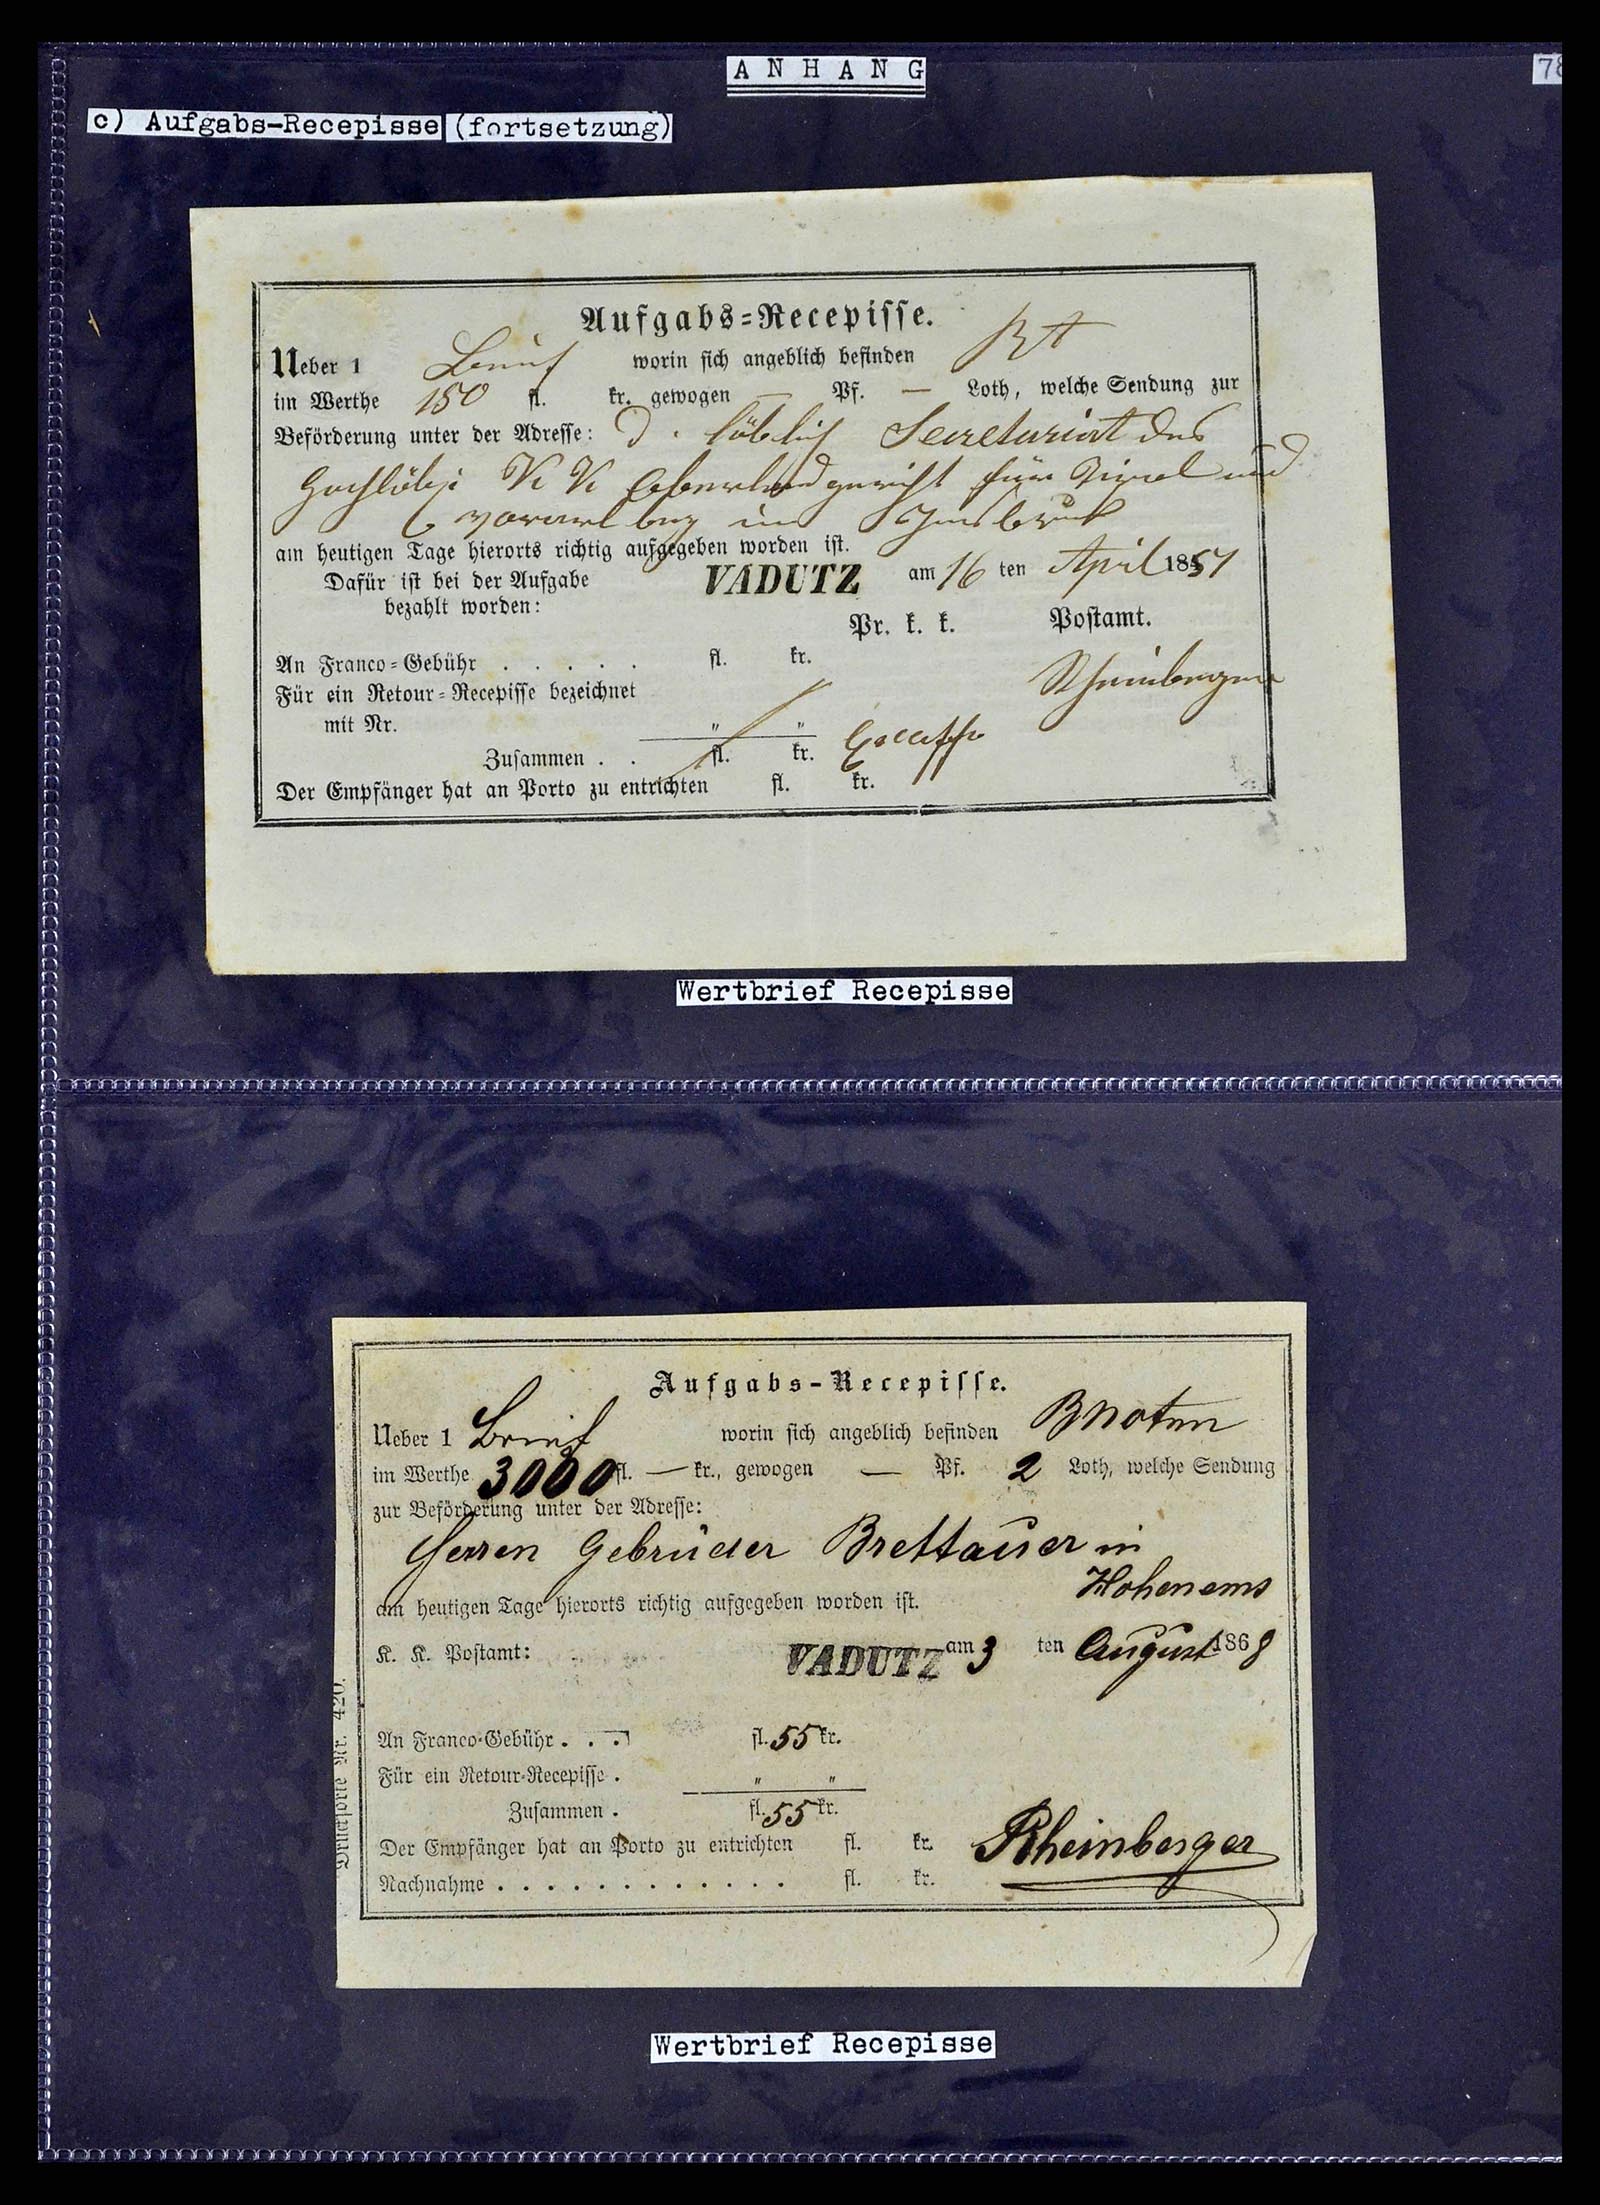 ANHANG
78
c) Aufgabs-Recepisse (fortsetzung)
Aufgabs=Recepisse.
Ueber 1 Brief worin sich angeblich befinden
im Werthe 150 fl. kr. gewogen — Pf. — Loth, welche Sendung zur
Beförderung unter der Adresse: d. löblich Secretariat des
K K Oberlandgericht für Tirol und
Vorarlberg in Innsbruck
am heutigen Tage hierorts richtig aufgegeben worden ist.
Dafür ist bei der Aufgabe VADUTZ am 16 ten April 1857
bezahlt worden:
Pr. k. k. Postamt.
An Franco=Gebühr . . . . . fl. kr.
Für ein Retour=Recepisse bezeichnet Rheinberger
mit Nr. " "
Zusammen . . fl. kr.
Der Empfänger hat an Porto zu entrichten fl. kr.
Wertbrief Recepisse
Aufgabs-Recepisse.
Ueber 1 Brief worin sich angeblich befinden BNoten
im Werthe 3000 fl. — kr., gewogen — Pf. 2 Loth, welche Sendung
zur Beförderung unter der Adresse:
Herren Gebrüder Brettauer in
Hohenems
am heutigen Tage hierorts richtig aufgegeben worden ist.
K. K. Postamt: VADUTZ am 3 ten August 1868
An Franco-Gebühr . . . fl. 55 kr.
Für ein Retour-Recepisse . " "
Zusammen . fl. 55 kr.
Der Empfänger hat an Porto zu entrichten fl. kr. Rheinberger
Nachnahme . . . . . . . . . . . . fl. kr.
Drucksorte Nr. 420.
Wertbrief Recepisse